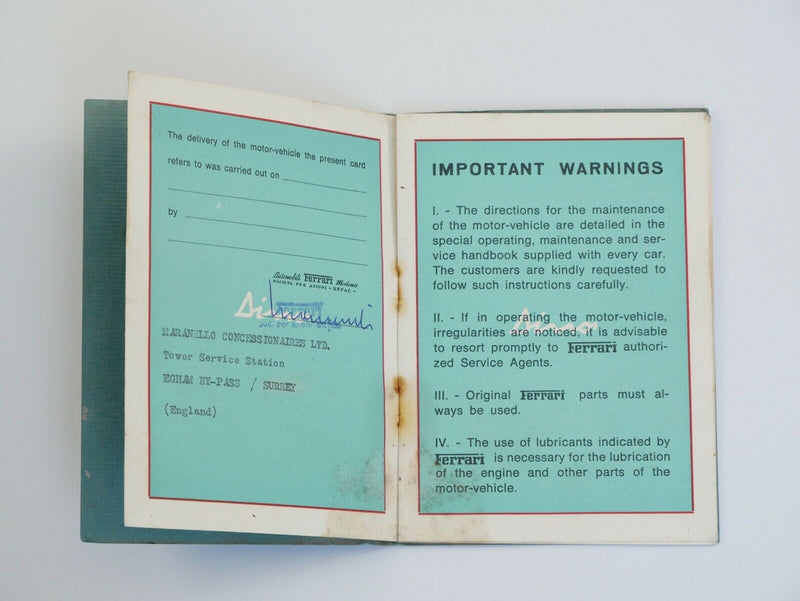 The delivery of the motor-vehicle the present card
refers to was carried out on
by
Automobili Ferrari Modena
SOCIETÀ PER AZIONI - SEFAC -
Dino
MARANELLO CONCESSIONAIRES LTD.
Tower Service Station
EGHAM BY-PASS / SURREY
(England)
IMPORTANT WARNINGS
I. - The directions for the maintenance
of the motor-vehicle are detailed in the
special operating, maintenance and ser-
vice handbook supplied with every car.
The customers are kindly requested to
follow such instructions carefully.
II. - If in operating the motor-vehicle,
Dino
irregularities are noticed, it is advisable
to resort promptly to Ferrari authori-
zed Service Agents.
III. - Original Ferrari parts must al-
ways be used.
IV. - The use of lubricants indicated by
Ferrari is necessary for the lubrication
of the engine and other parts of the
motor-vehicle.